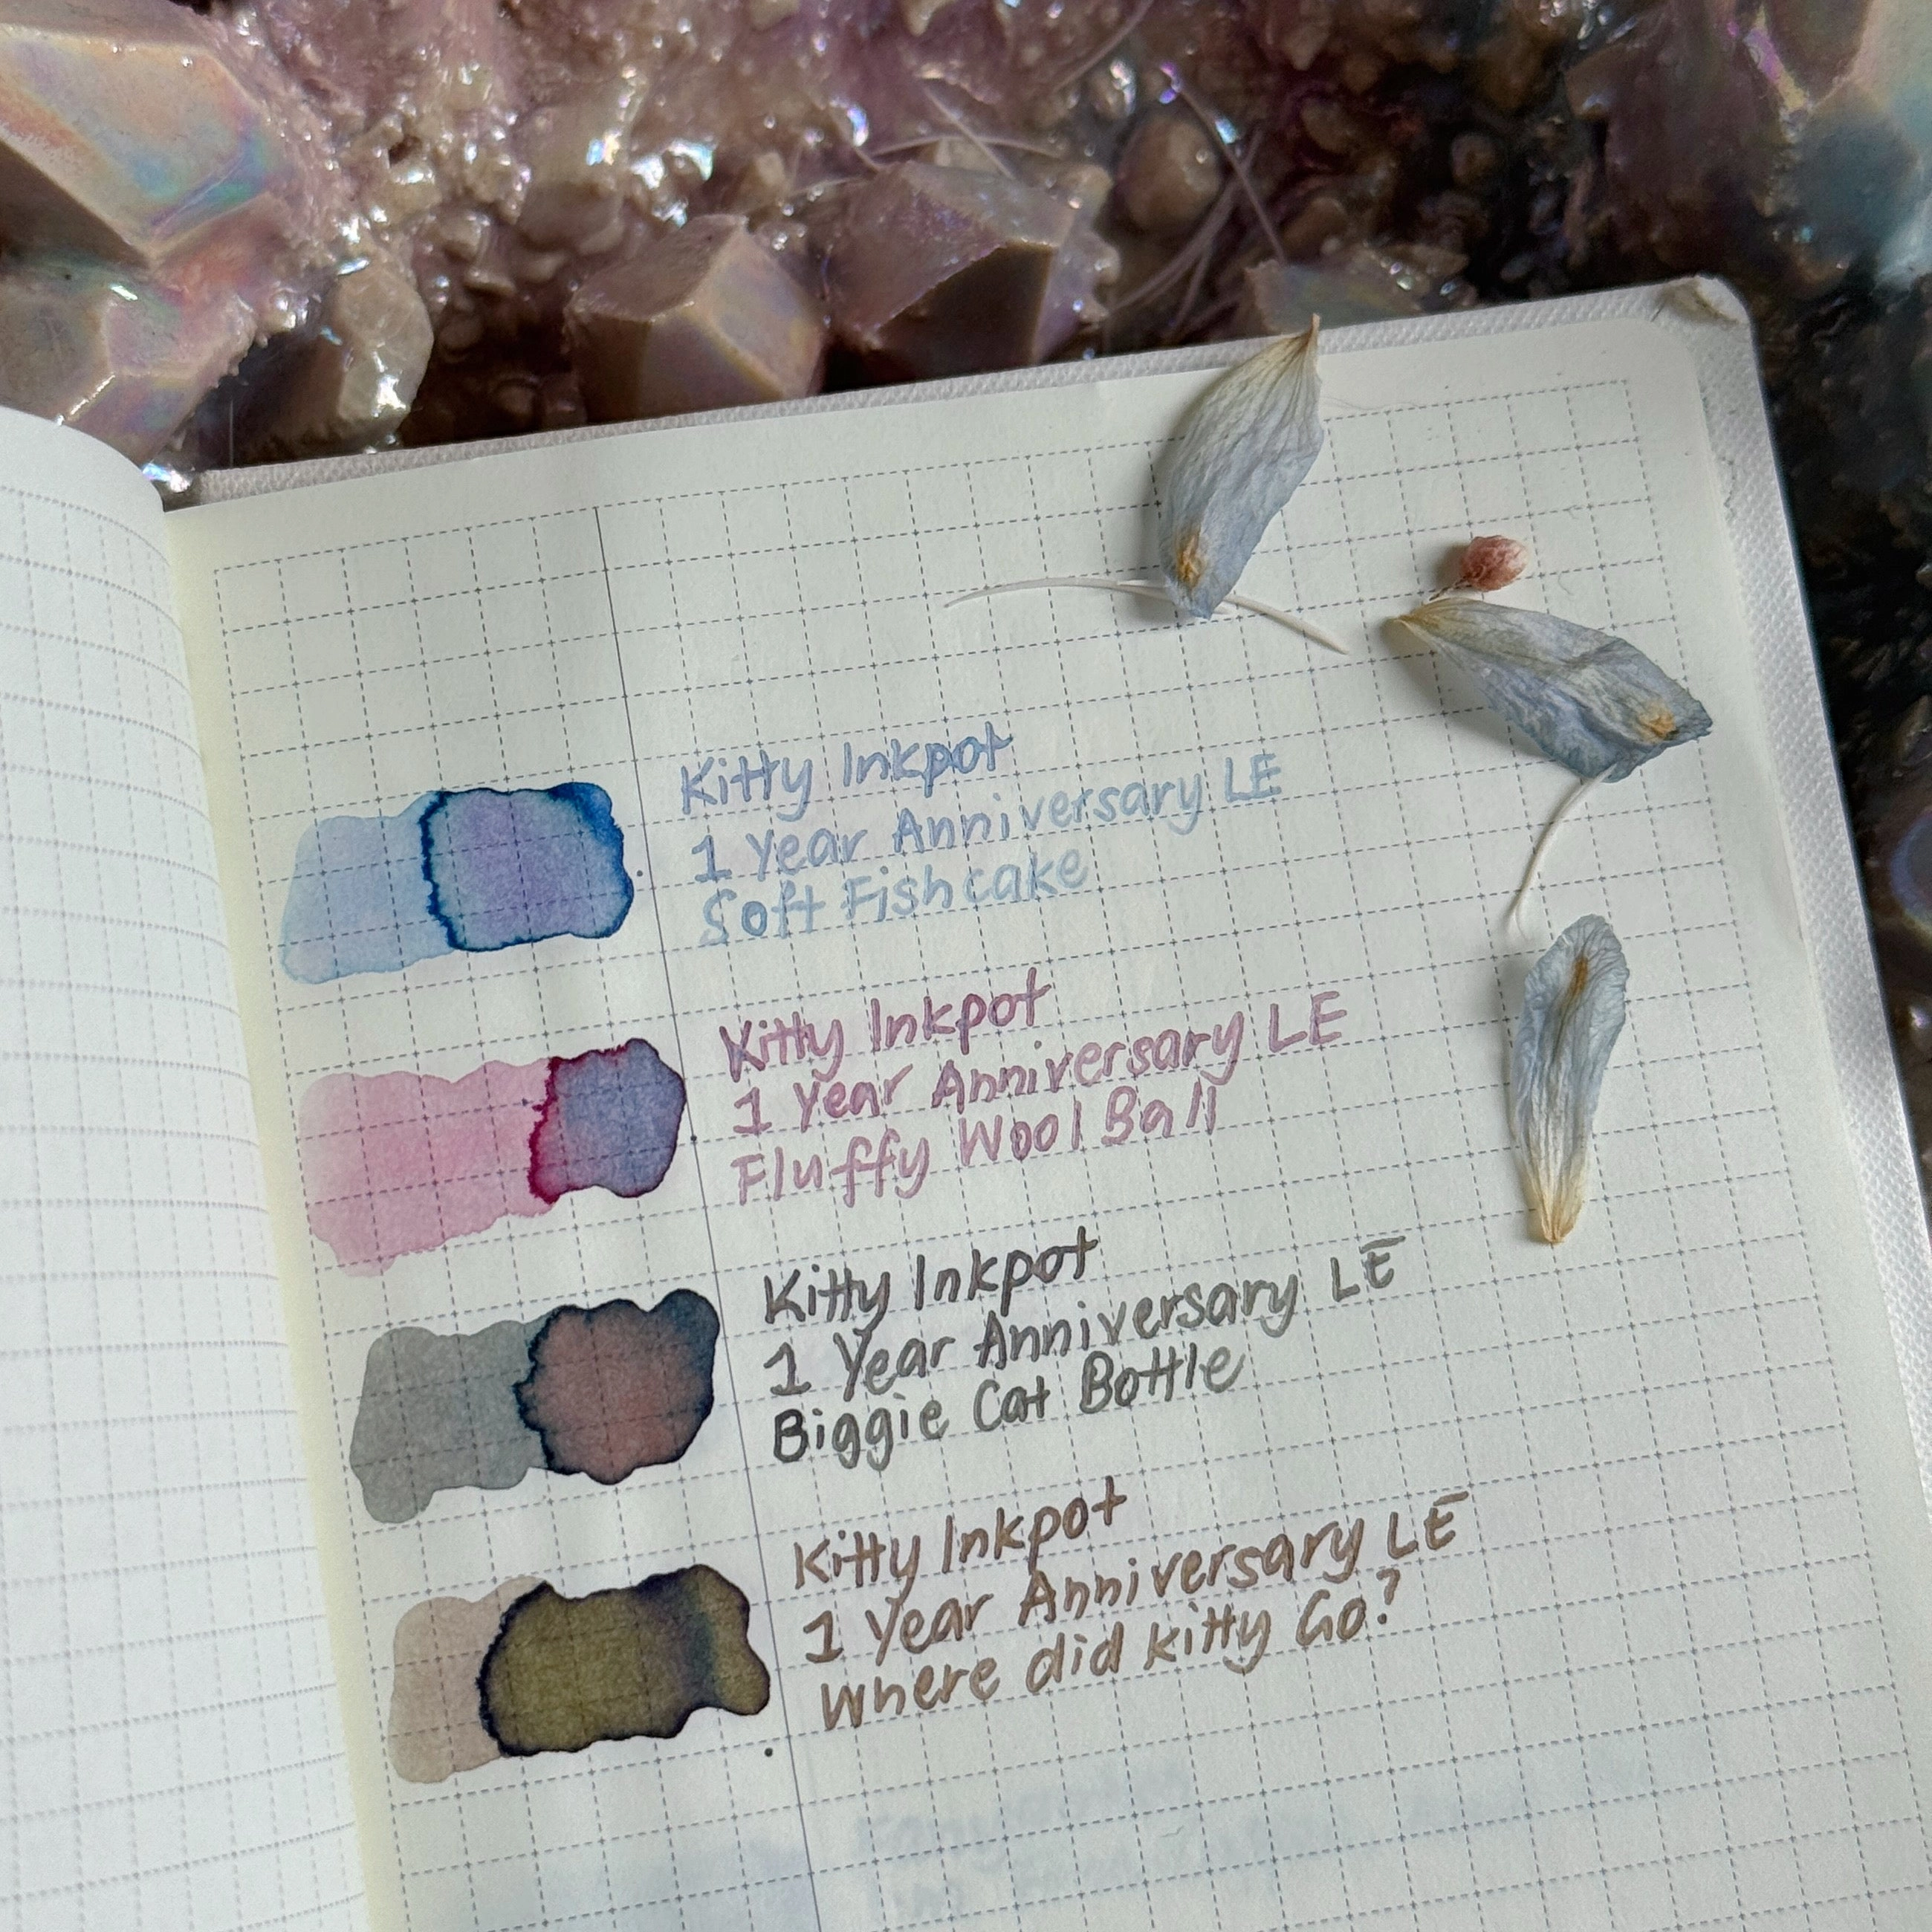 Kitty Inkpot
1 Year Anniversary LE
Soft Fishcake
Kitty Inkpot
1 Year Anniversary LE
Fluffy Wool Ball
Kitty Inkpot
1 Year Anniversary LE
Biggie Cat Bottle
Kitty Inkpot
1 Year Anniversary LE
Where did kitty Go?